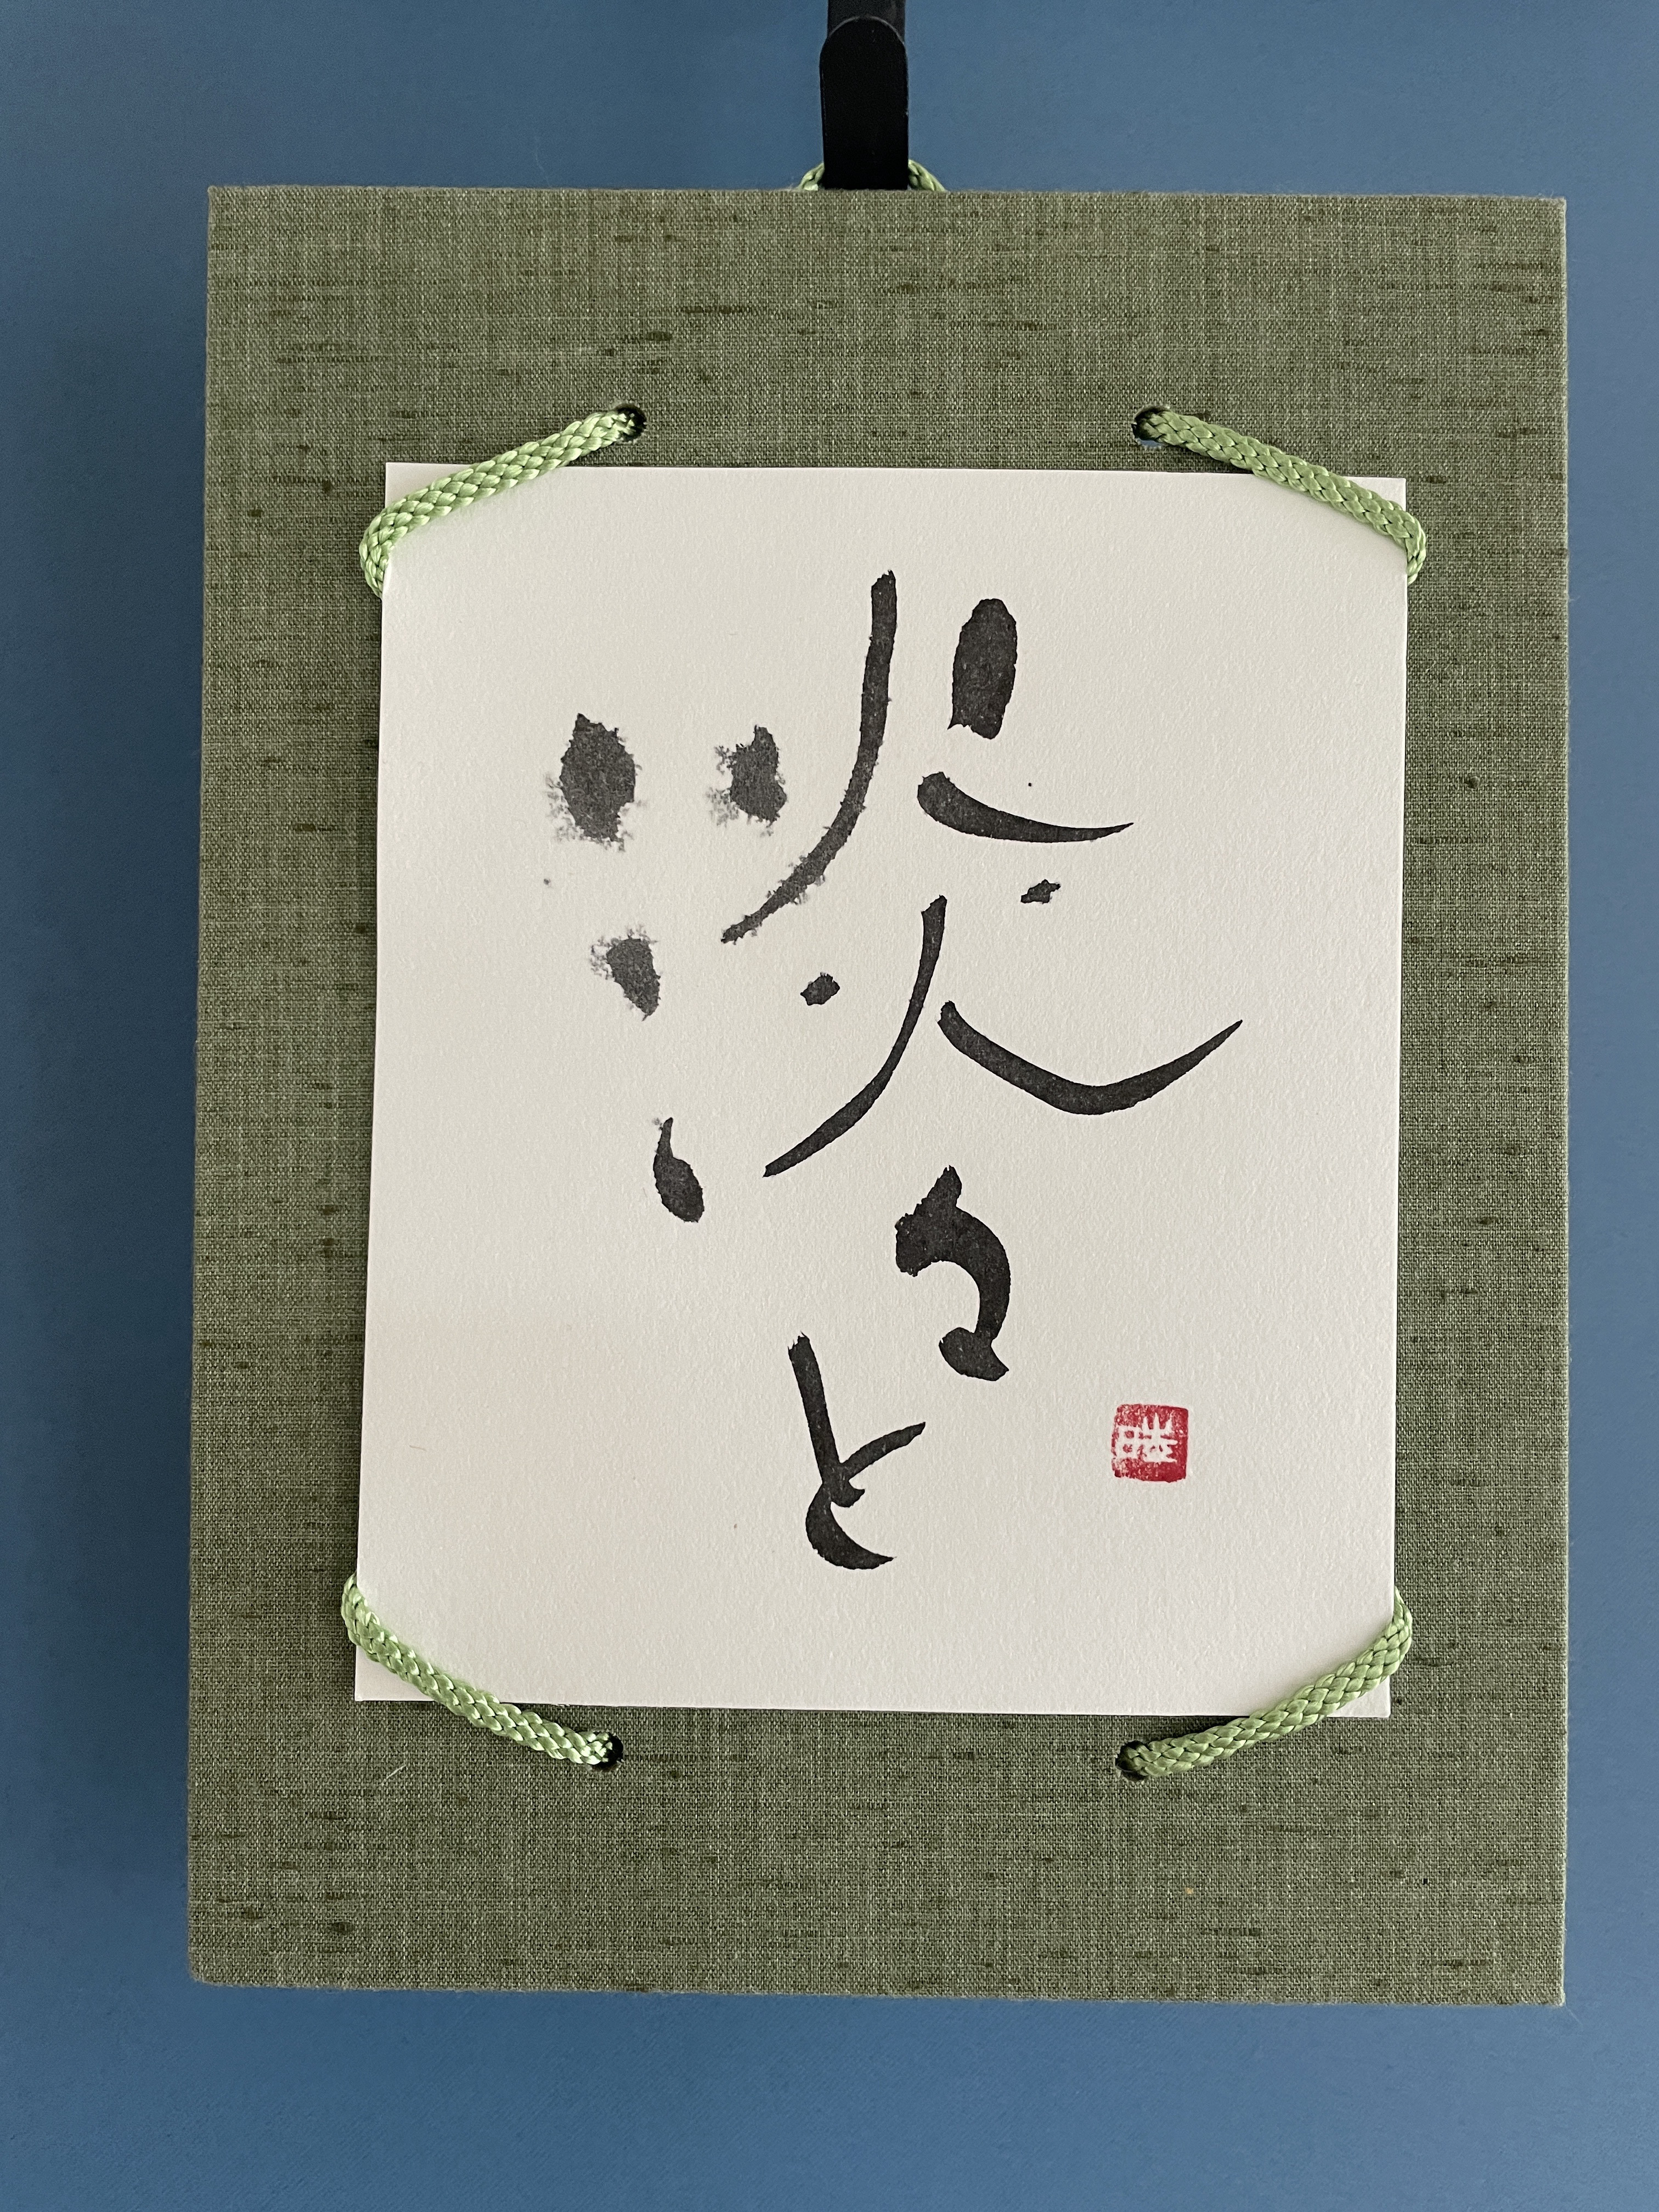 淡々と